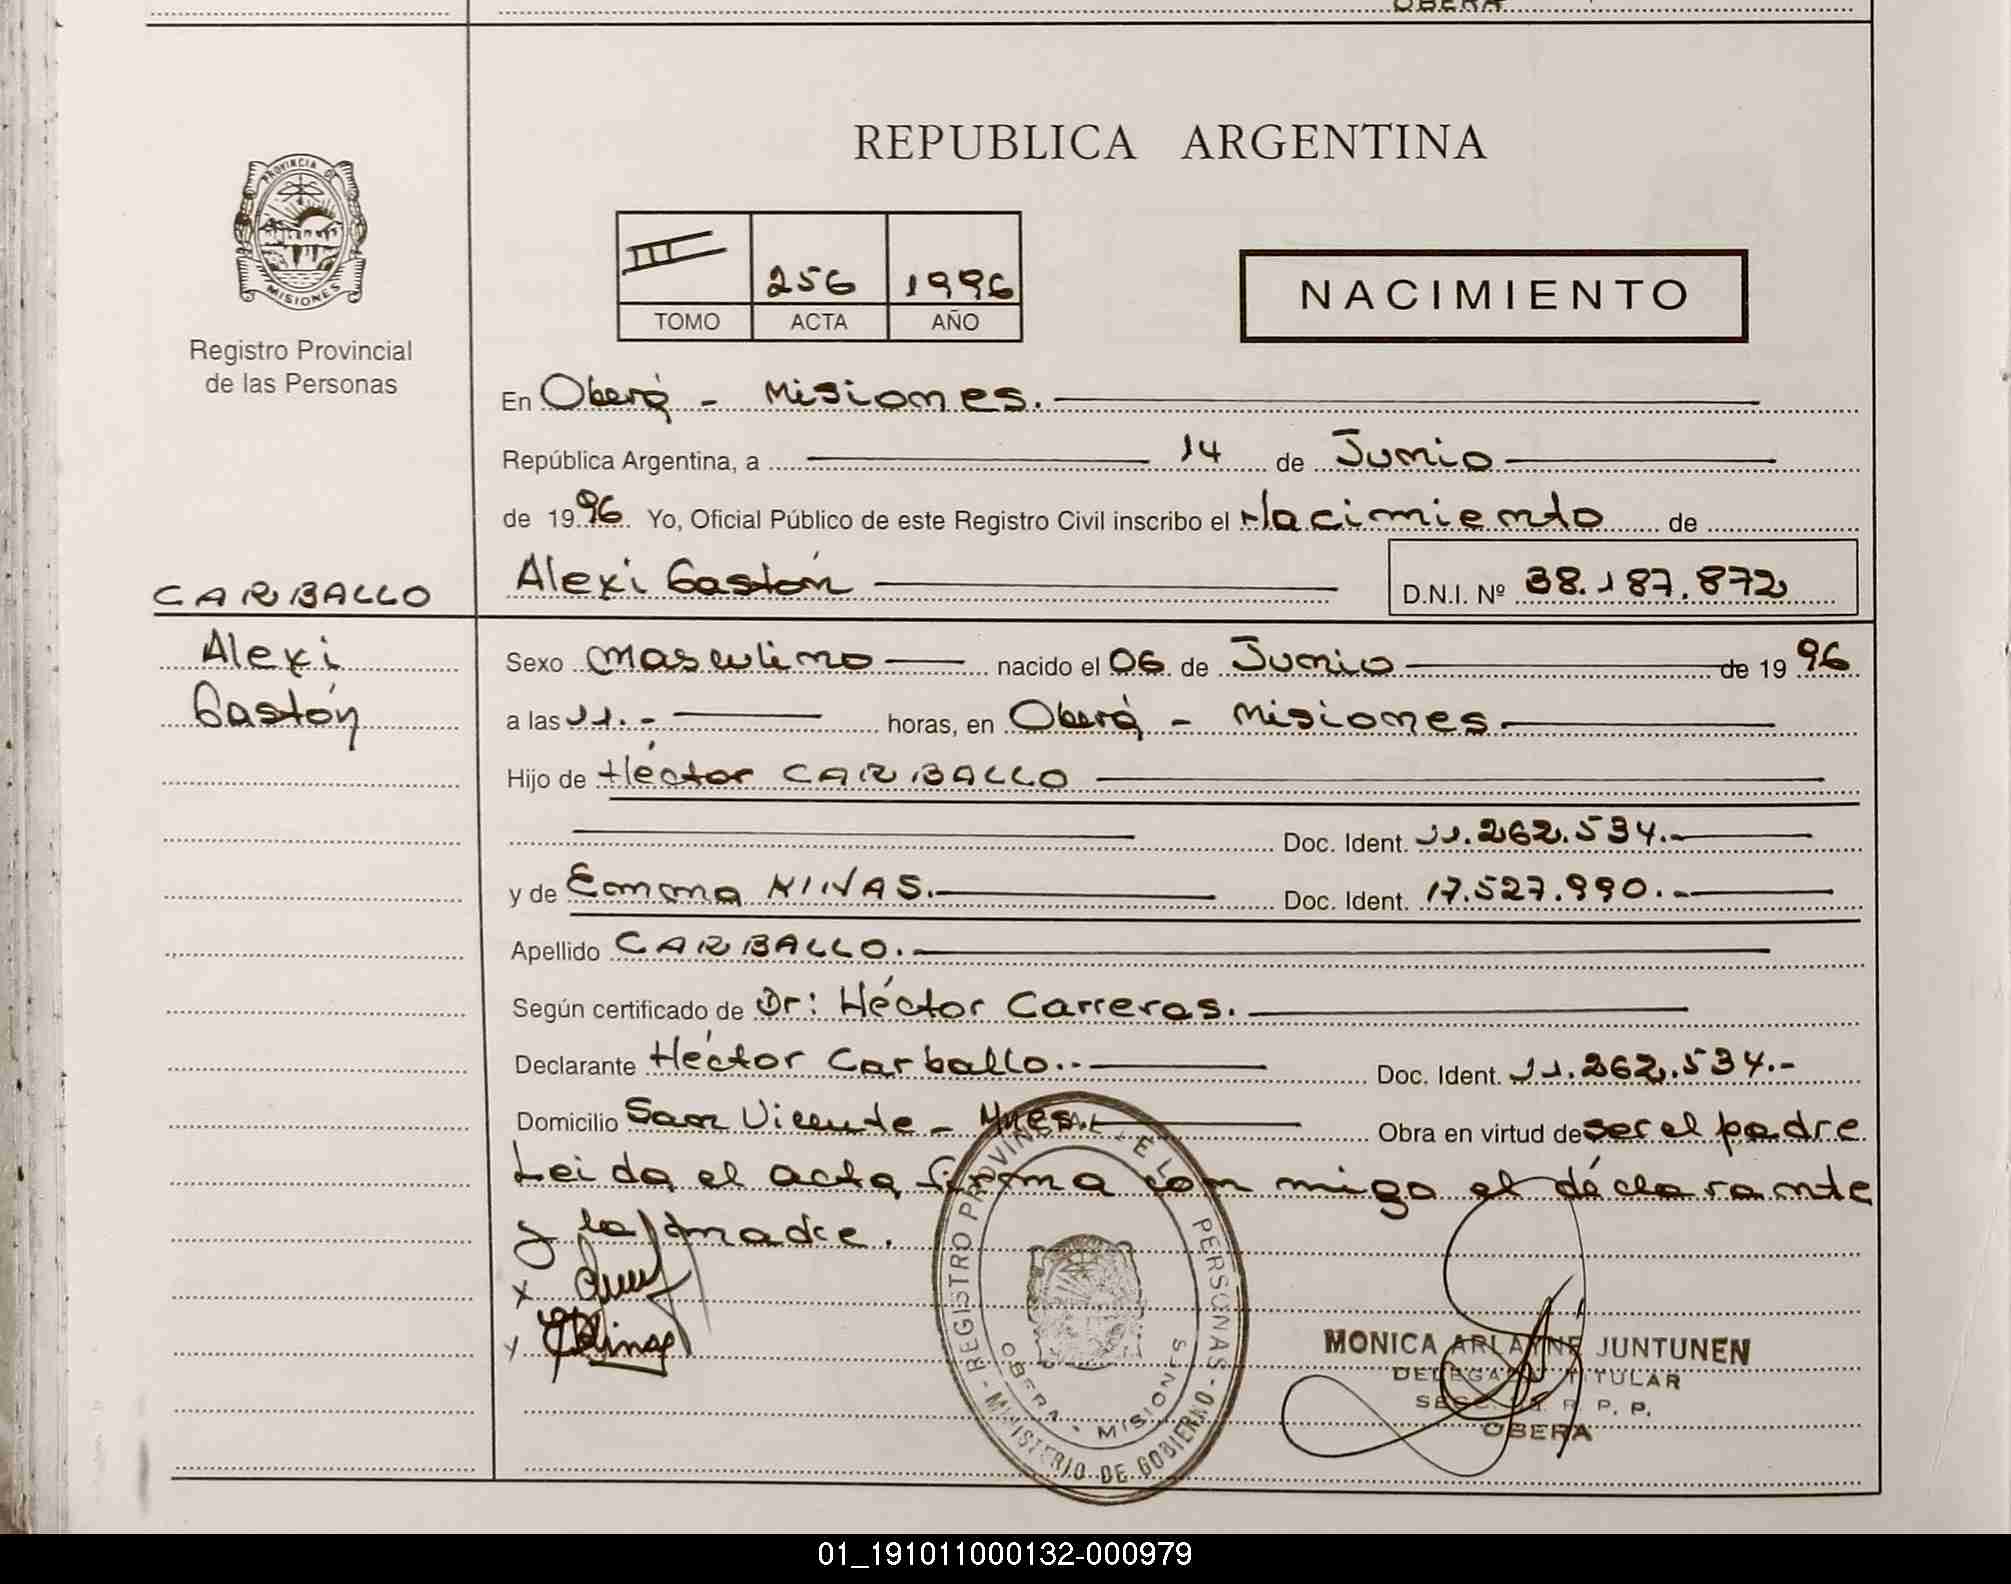 OBERA
REPUBLICA ARGENTINA
PROVINCIA DE
MISIONES
Registro Provincial
de las Personas
III 256 1996
TOMO ACTA AÑO
NACIMIENTO
En Oberá - Misiones.
República Argentina, a 14 de Junio
de 1996 Yo, Oficial Público de este Registro Civil inscribo el Nacimiento de
Alexi Gastón D.N.I. Nº 38.187.872
CARBALLO
Alexi
Gastón
Sexo Masculino nacido el 06 de Junio de 1996
a las 11.- horas, en Oberá - Misiones
Hijo de Héctor CARBALLO
Doc. Ident. 11.262.534.-
y de Emma KINAS. Doc. Ident. 17.527.990.-
Apellido CARBALLO.
Según certificado de Dr: Héctor Carreras.
Declarante Héctor Carballo.- Doc. Ident. 11.262.534.-
Domicilio San Vicente - Mnes. Obra en virtud de ser el padre
Leida el acta firma con migo el declarante
y la madre.
x
y
REGISTRO PROVINCIAL DE LAS PERSONAS - MINISTERIO DE GOBIERNO -
OBERA - MISIONES
MONICA ARLAYNE JUNTUNEN
DELEGADA TITULAR
R. P. P.
OBERA
01_191011000132-000979